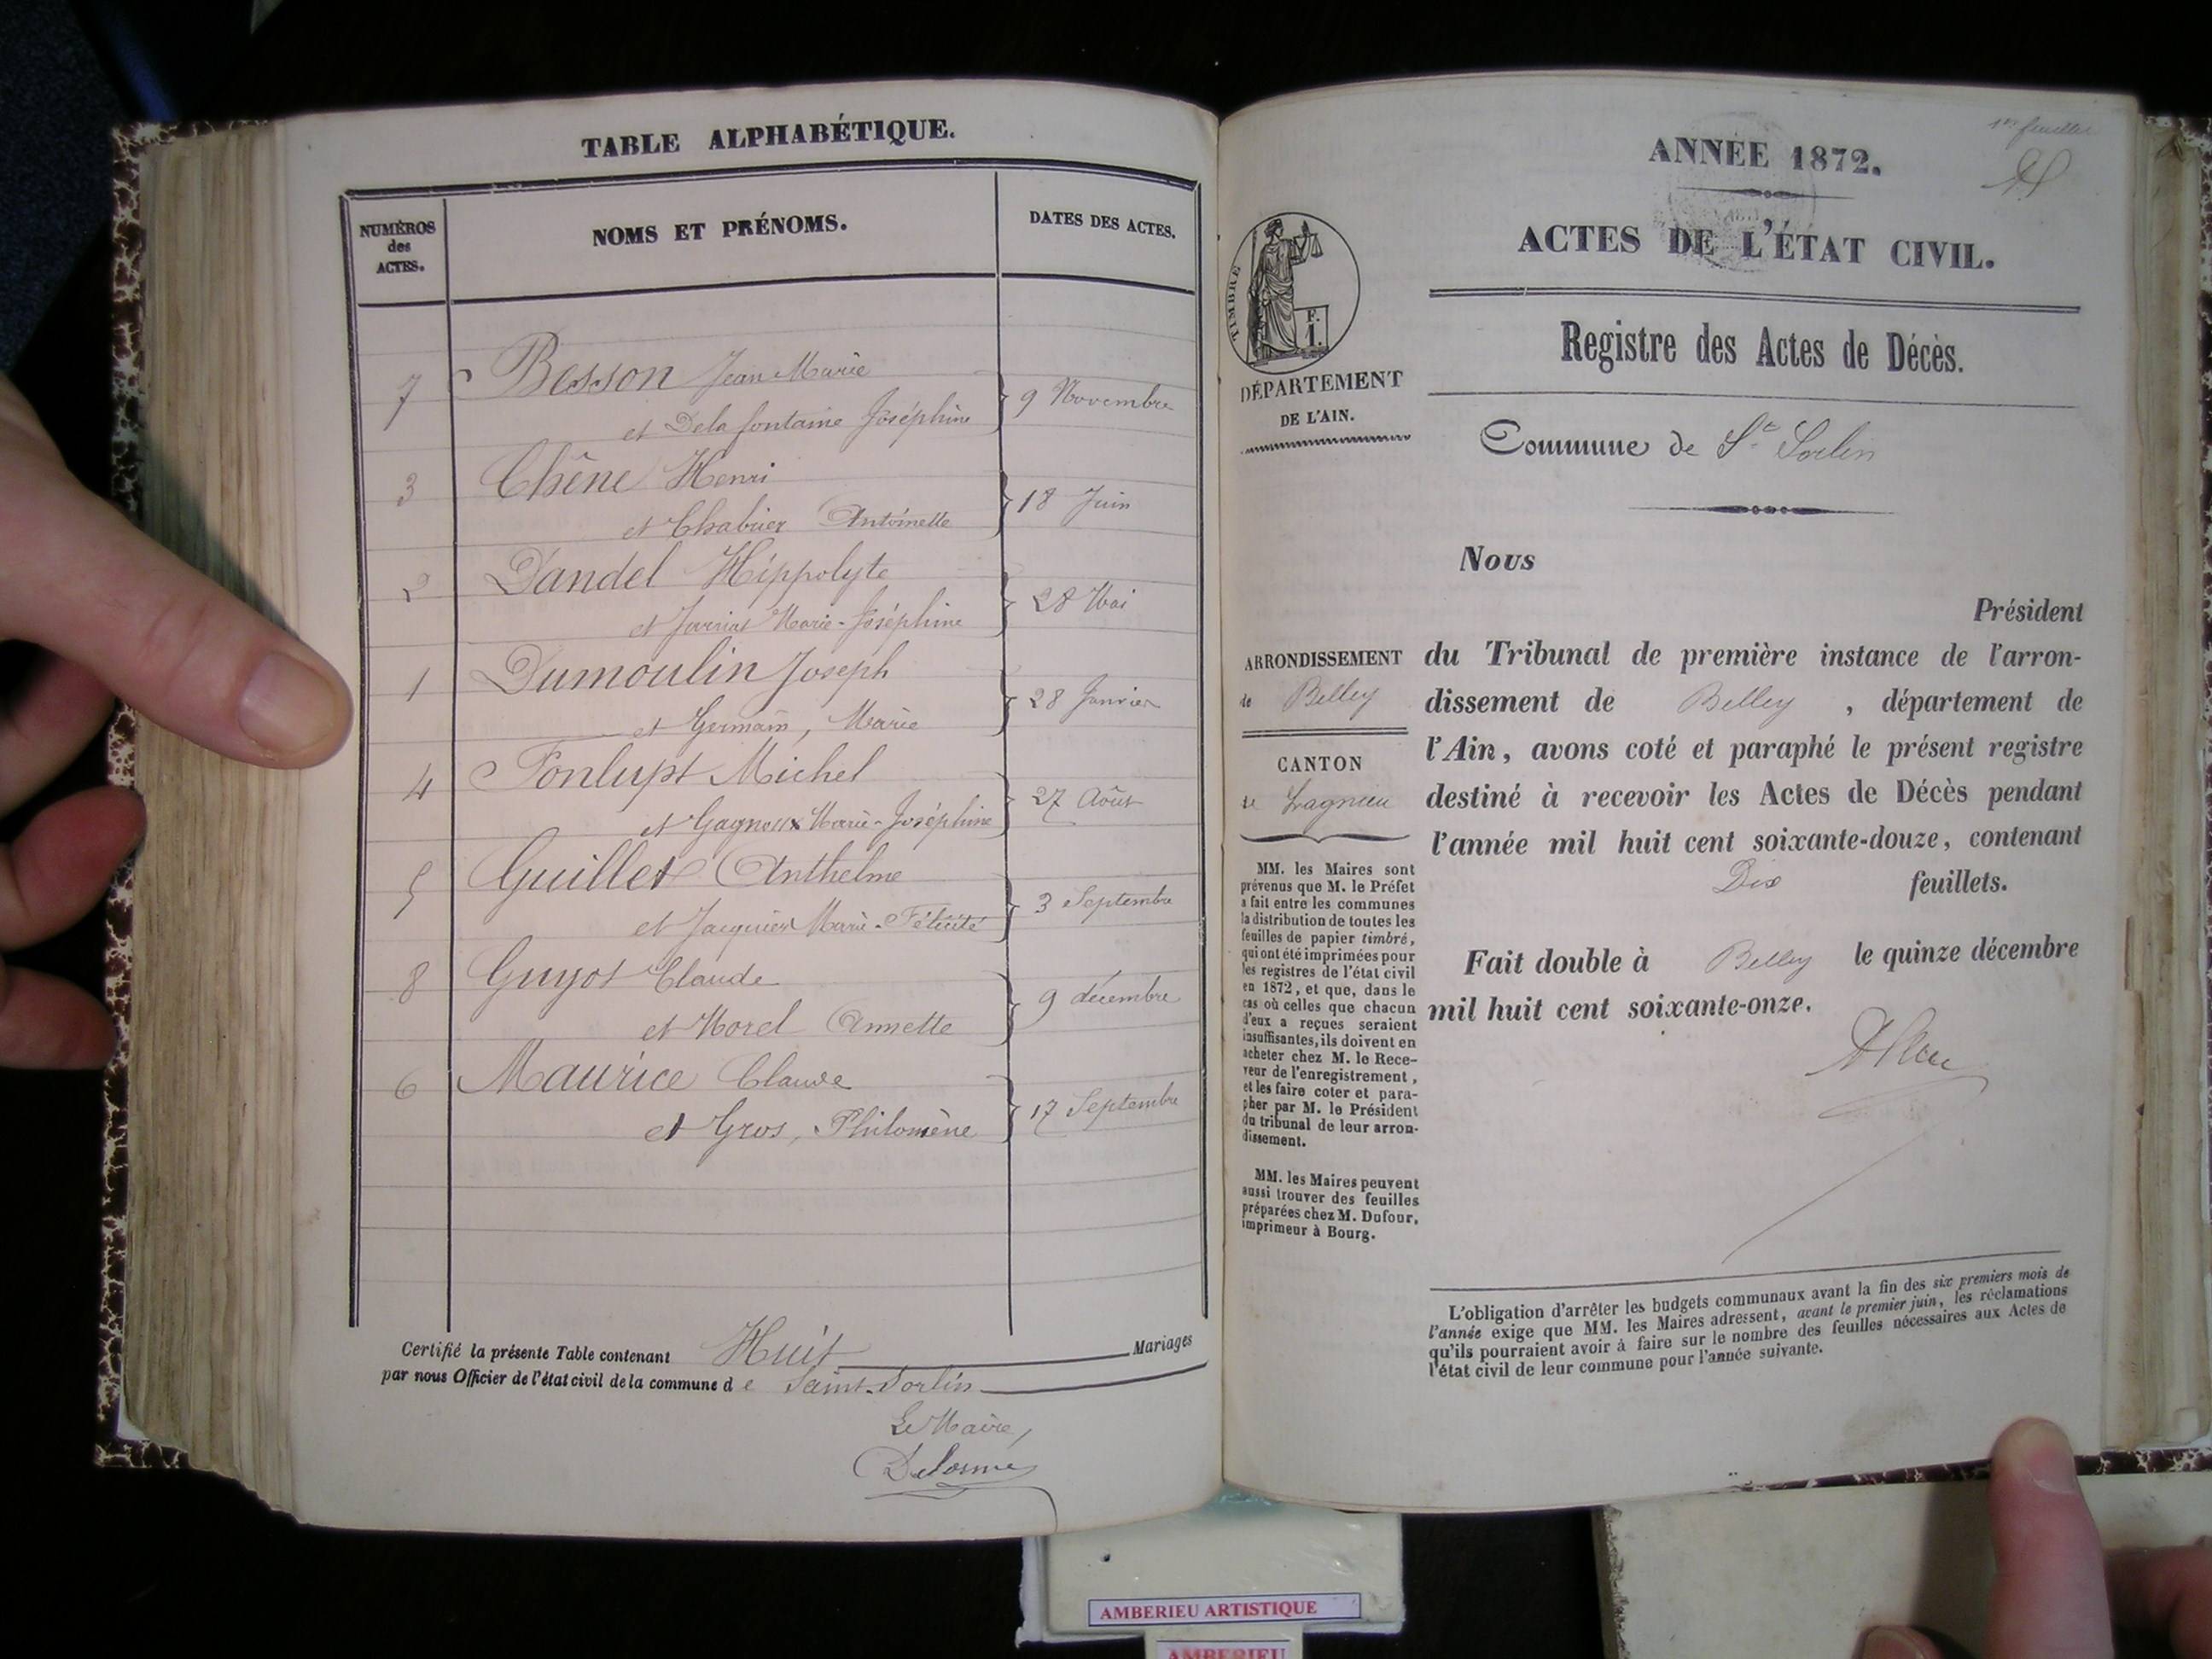 TABLE ALPHABÉTIQUE.
NUMÉROS
des
ACTES.
NOMS ET PRÉNOMS.
DATES DES ACTES.
7 Besson Jean Marie
et Delafontaine Joséphine
9 Novembre
3 Chêne Henri
et Chabrier Antoinette
18 Juin
2 Dandel Hippolyte
et Juvriat Marie-Joséphine
28 Mai
1 Dumoulin Joseph
et Germain, Marie
28 Janvier
4 Fonlupt Michel
et Gagneux Marie-Joséphine
27 Août
5 Guillet Anthelme
et Jacquier Marie-Félicité
3 Septembre
8 Guyot Claude
et Morel Annette
9 décembre
6 Maurice Claude
et Gros, Philomène
17 Septembre
Certifié la présente Table contenant Huit Mariages
par nous Officier de l'état civil de la commune d e Saint-Sorlin
Le Maire,
Delorme
1er feuillet
ANNÉE 1872.
ACTES DE L'ÉTAT CIVIL.
TIMBRE
F.
1.
DÉPARTEMENT
DE L'AIN.
Registre des Actes de Décès.
Commune de St Sorlin
Nous
Président
ARRONDISSEMENT
de Belley
CANTON
de Lagnieu
du Tribunal de première instance de l'arron-
dissement de Belley , département de
l'Ain, avons coté et paraphé le présent registre
destiné à recevoir les Actes de Décès pendant
l'année mil huit cent soixante-douze, contenant
Dix feuillets.
Fait double à Belley le quinze décembre
mil huit cent soixante-onze.
MM. les Maires sont
prévenus que M. le Préfet
a fait entre les communes
la distribution de toutes les
feuilles de papier timbré,
qui ont été imprimées pour
les registres de l'état civil
en 1872, et que, dans le
cas où celles que chacun
d'eux a reçues seraient
insuffisantes, ils doivent en
acheter chez M. le Rece-
veur de l'enregistrement,
et les faire coter et para-
pher par M. le Président
du tribunal de leur arron-
dissement.
MM. les Maires peuvent
aussi trouver des feuilles
préparées chez M. Dufour,
imprimeur à Bourg.
L'obligation d'arrêter les budgets communaux avant la fin des six premiers mois de
l'année exige que MM. les Maires adressent, avant le premier juin, les réclamations
qu'ils pourraient avoir à faire sur le nombre des feuilles nécessaires aux Actes de
l'état civil de leur commune pour l'année suivante.
AMBERIEU ARTISTIQUE
AMBERIEU